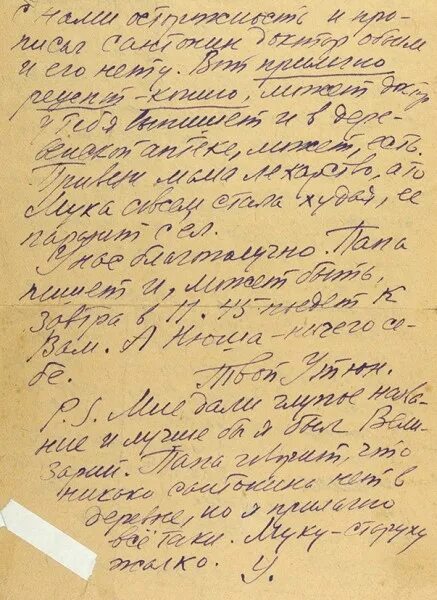 с нами осторожность и про-
писал сантонин доктор обоим
и его нету. Вот прилагаю
рецепт - копию, может доктор
у Тебя выпишет и в дере-
венской аптеке, может, есть.
Привези мама лекарство, а то
Мука совсем стала худая, ее
паразит съел.
У нас благополучно. Папа
пишет и, может быть,
завтра в 11.45 поедет к
Вам. А Нюша - ничего се-
бе.
Твой Утюн.
P.S. Мне дали глупое назва-
ние и лучше бы я был Вели-
зарий. Папа говорит, что
никако сантонина нет в
деревне, но я прилагаю
всё таки. Муку - старуху
жалко. У.